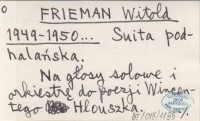 FRIEMAN Witold
1949-1950... Suita pod-
halańska.
Na głosy solowe i
orkiestrę do poezji Wincen-
tego Hlouszka.